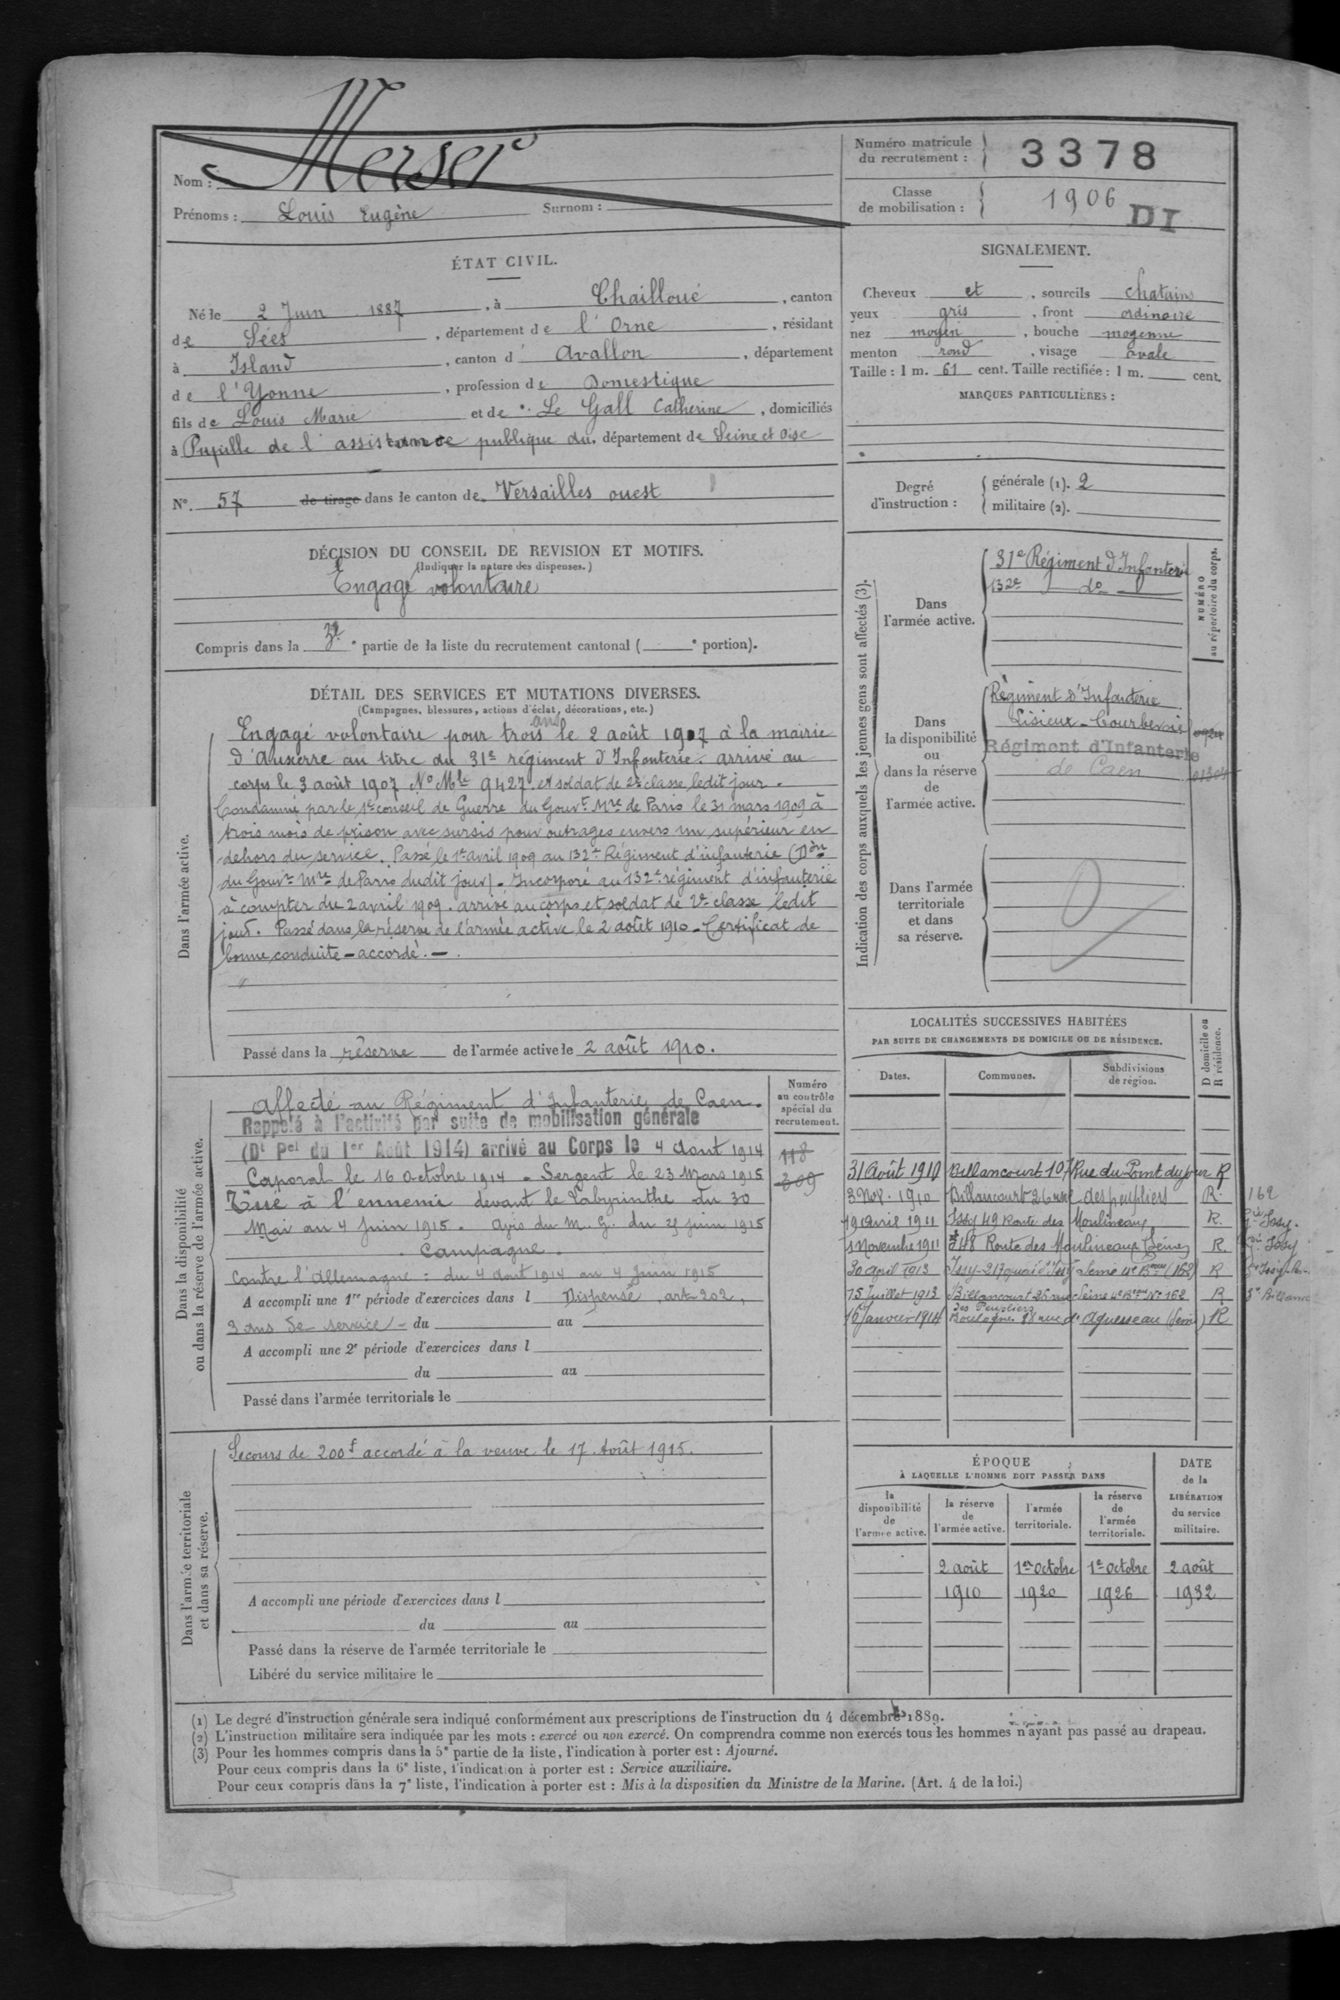 Nom : Merser
Prénoms : Louis Eugène Surnom :
Numéro matricule
du recrutement : 3378
Classe
de mobilisation : 1906
DI
ÉTAT CIVIL.
Né le 2 Juin 1887, à Chailloué, canton
de Séés, département de l'Orne, résidant
à Island, canton d' Avallon, département
de l'Yonne, profession de Domestique
fils de Louis Marie et de Le Gall Catherine, domiciliés
à Pupille de l'assistance publique du, département de Seine et Oise
N° 57 de tirage dans le canton de Versailles ouest
DÉCISION DU CONSEIL DE REVISION ET MOTIFS.
(Indiquer la nature des dispenses.)
Engagé volontaire
Compris dans la 3e partie de la liste du recrutement cantonal ( e portion).
SIGNALEMENT.
Cheveux et, sourcils chatains
yeux gris, front ordinaire
nez moyen, bouche moyenne
menton rond, visage ovale
Taille : 1 m. 61 cent. Taille rectifiée : 1 m. cent.
MARQUES PARTICULIÈRES :
Degré
d'instruction :
générale (1). 2
militaire (2).
DÉTAIL DES SERVICES ET MUTATIONS DIVERSES.
(Campagnes, blessures, actions d'éclat, décorations, etc.)
Dans l'armée active.
Engagé volontaire pour trois ans le 2 août 1907 à la mairie
d'Auxerre au titre du 31e régiment d'Infanterie. arrivé au
corps le 3 août 1907 No Mle 9427. et soldat de 2e classe ledit jour.
Condamné par le 1er conseil de Guerre du Gouvt Mre de Paris le 31 mars 1909 à
trois mois de prison avec sursis pour outrages envers un supérieur en
dehors du service. Passé le 1er avril 1909 au 132e Régiment d'infanterie (Don
du Gouvr Mre de Paris dudit jour). Incorporé au 132e régiment d'infanterie
à compter du 2 avril 1909. arrivé au corps et soldat de 2e classe ledit
jour. Passé dans la réserve de l'armée active le 2 août 1910 - Certificat de
bonne conduite - accordé. -
Passé dans la réserve de l'armée active le 2 août 1910.
Indication des corps auxquels les jeunes gens sont affectés (3).
NUMÉRO
au répertoire du corps.
Dans
l'armée active.
31e Régiment d'Infanterie
132e do
Dans
la disponibilité
ou
dans la réserve
de
l'armée active.
Régiment d'Infanterie
Lisieux - Courbevoie
Régiment d'Infanterie
de Caen
Dans l'armée
territoriale
et dans
sa réserve.
Dans la disponibilité
ou dans la réserve de l'armée active.
Numéro
au contrôle
spécial du
recrutement.
118
309
Affecté au Régiment d'Infanterie de Caen.
Rappelé à l'activité par suite de mobilisation générale
(Dt Pel du 1er Août 1914) arrivé au Corps le 4 Aout 1914
Caporal le 16 octobre 1914 - Sergent le 23 Mars 1915
Tué à l'ennemi devant le Labyrinthe du 30
Mai au 4 Juin 1915. Avis du M. G. du 25 juin 1915
Campagne
Contre l'Allemagne : du 4 Aout 1914 au 4 Juin 1915
A accompli une 1re période d'exercices dans l Dispensé, art 202,
3 ans de service - du au
A accompli une 2e période d'exercices dans l
du au
Passé dans l'armée territoriale le
LOCALITÉS SUCCESSIVES HABITÉES
PAR SUITE DE CHANGEMENTS DE DOMICILE OU DE RÉSIDENCE.
Dates. Communes. Subdivisions de région. D domicile ou R résidence.
31 Août 1910 Billancourt 107 Rue du Point du jour R
3 Nov. 1910 Billancourt 26 rue des peupliers R. 162
19 Avril 1911 Issy 49 Route des Moulineaux R. Issy.
1 Novembre 1911 48 Route des Moulineaux (Seine) R. Issy
30 avril 1913 Issy - 217 quai d'Issy Seine 4e Beau (162) R
15 Juillet 1913 Billancourt 26 rue des Peupliers Seine 4e Beau No 162 R
Janvier 1914 Boulogne rue d'Aguesseau (Seine) R
Dans l'armée territoriale
et dans sa réserve.
Secours de 200f accordé à la veuve le 17 Août 1915.
A accompli une période d'exercices dans l
du au
Passé dans la réserve de l'armée territoriale le
Libéré du service militaire le
ÉPOQUE
À LAQUELLE L'HOMME DOIT PASSER DANS
la disponibilité de l'armée active.
la réserve de l'armée active.
l'armée territoriale.
la réserve de l'armée territoriale.
DATE de la LIBÉRATION du service militaire.
2 août 1er octobre 1er octobre 2 août
1910 1920 1926 1932
(1) Le degré d'instruction générale sera indiqué conformément aux prescriptions de l'instruction du 4 décembre 1889.
(2) L'instruction militaire sera indiquée par les mots : exercé ou non exercé. On comprendra comme non exercés tous les hommes n'ayant pas passé au drapeau.
(3) Pour les hommes compris dans la 5e partie de la liste, l'indication à porter est : Ajourné.
Pour ceux compris dans la 6e liste, l'indication à porter est : Service auxiliaire.
Pour ceux compris dans la 7e liste, l'indication à porter est : Mis à la disposition du Ministre de la Marine. (Art. 4 de la loi.)